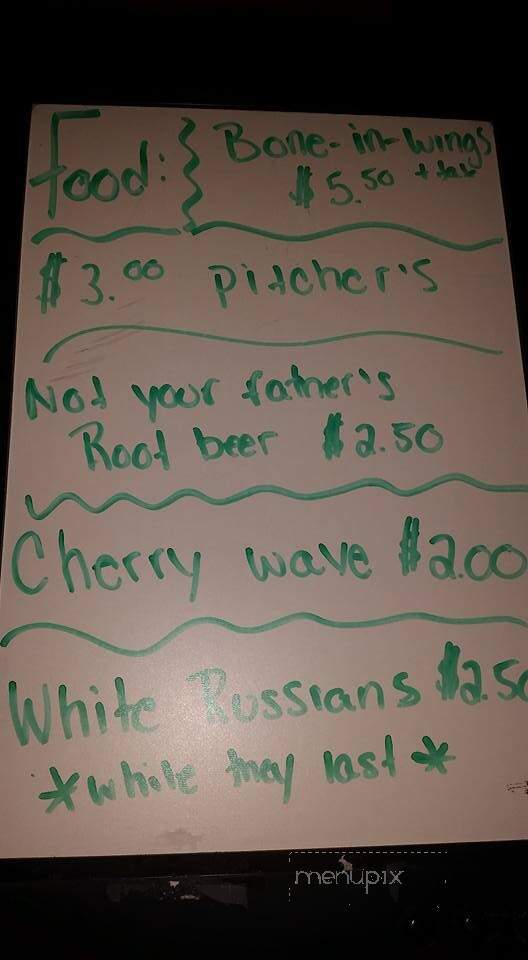 Food: Bone-in-wings
$5.50 + tax
$3.00 pitcher's
Not your father's
Root beer $2.50
Cherry wave $2.00
White Russians $2.50
*while they last*
menupix